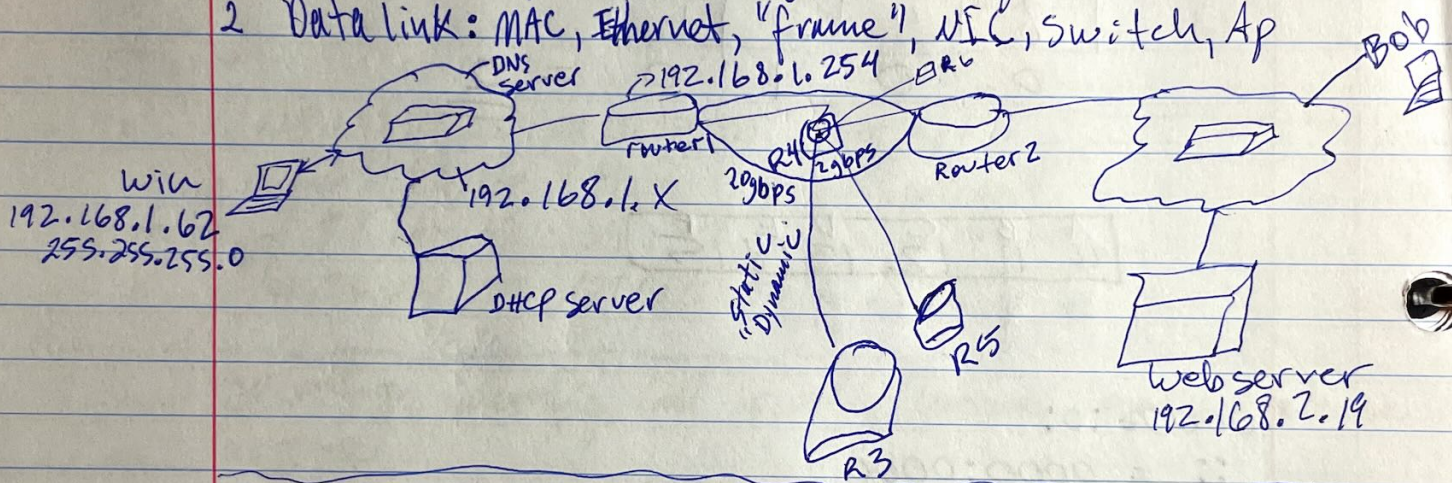 2 Data link: MAC, Ethernet, "frame", NIC, Switch, Ap
DNS
Server
192.168.1.254
R6
BOB
router1
R4
2gbps
20gbps
Router2
Win
192.168.1.62
255.255.255.0
192.168.1.X
DHCP server
"Static
"Dynamic
R5
R3
Webserver
192.168.2.19